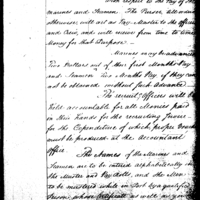 with respect to the Pay of the
Marines and Seamen. The Purser, all
otherwise will act as Pay Master to the Officers
and Crew, and will receive from time to time
Money for that Purpose.
Marines may be advanced
Two Dollars out of their first Month's Pay
and Seamen Two Months Pay if they can
not be obtained without such Advance.
The recruit'g Officers will be
held accountable for all Monies paid
in their Hands for the recruiting Service
for the Expenditure of which proper Vouchers
must be produced at the Accountant
Office.
The Names of the Marines and
Seamen are to be entered alphabetically in
the Muster and Pay Rolls, and the Men
to be mustered